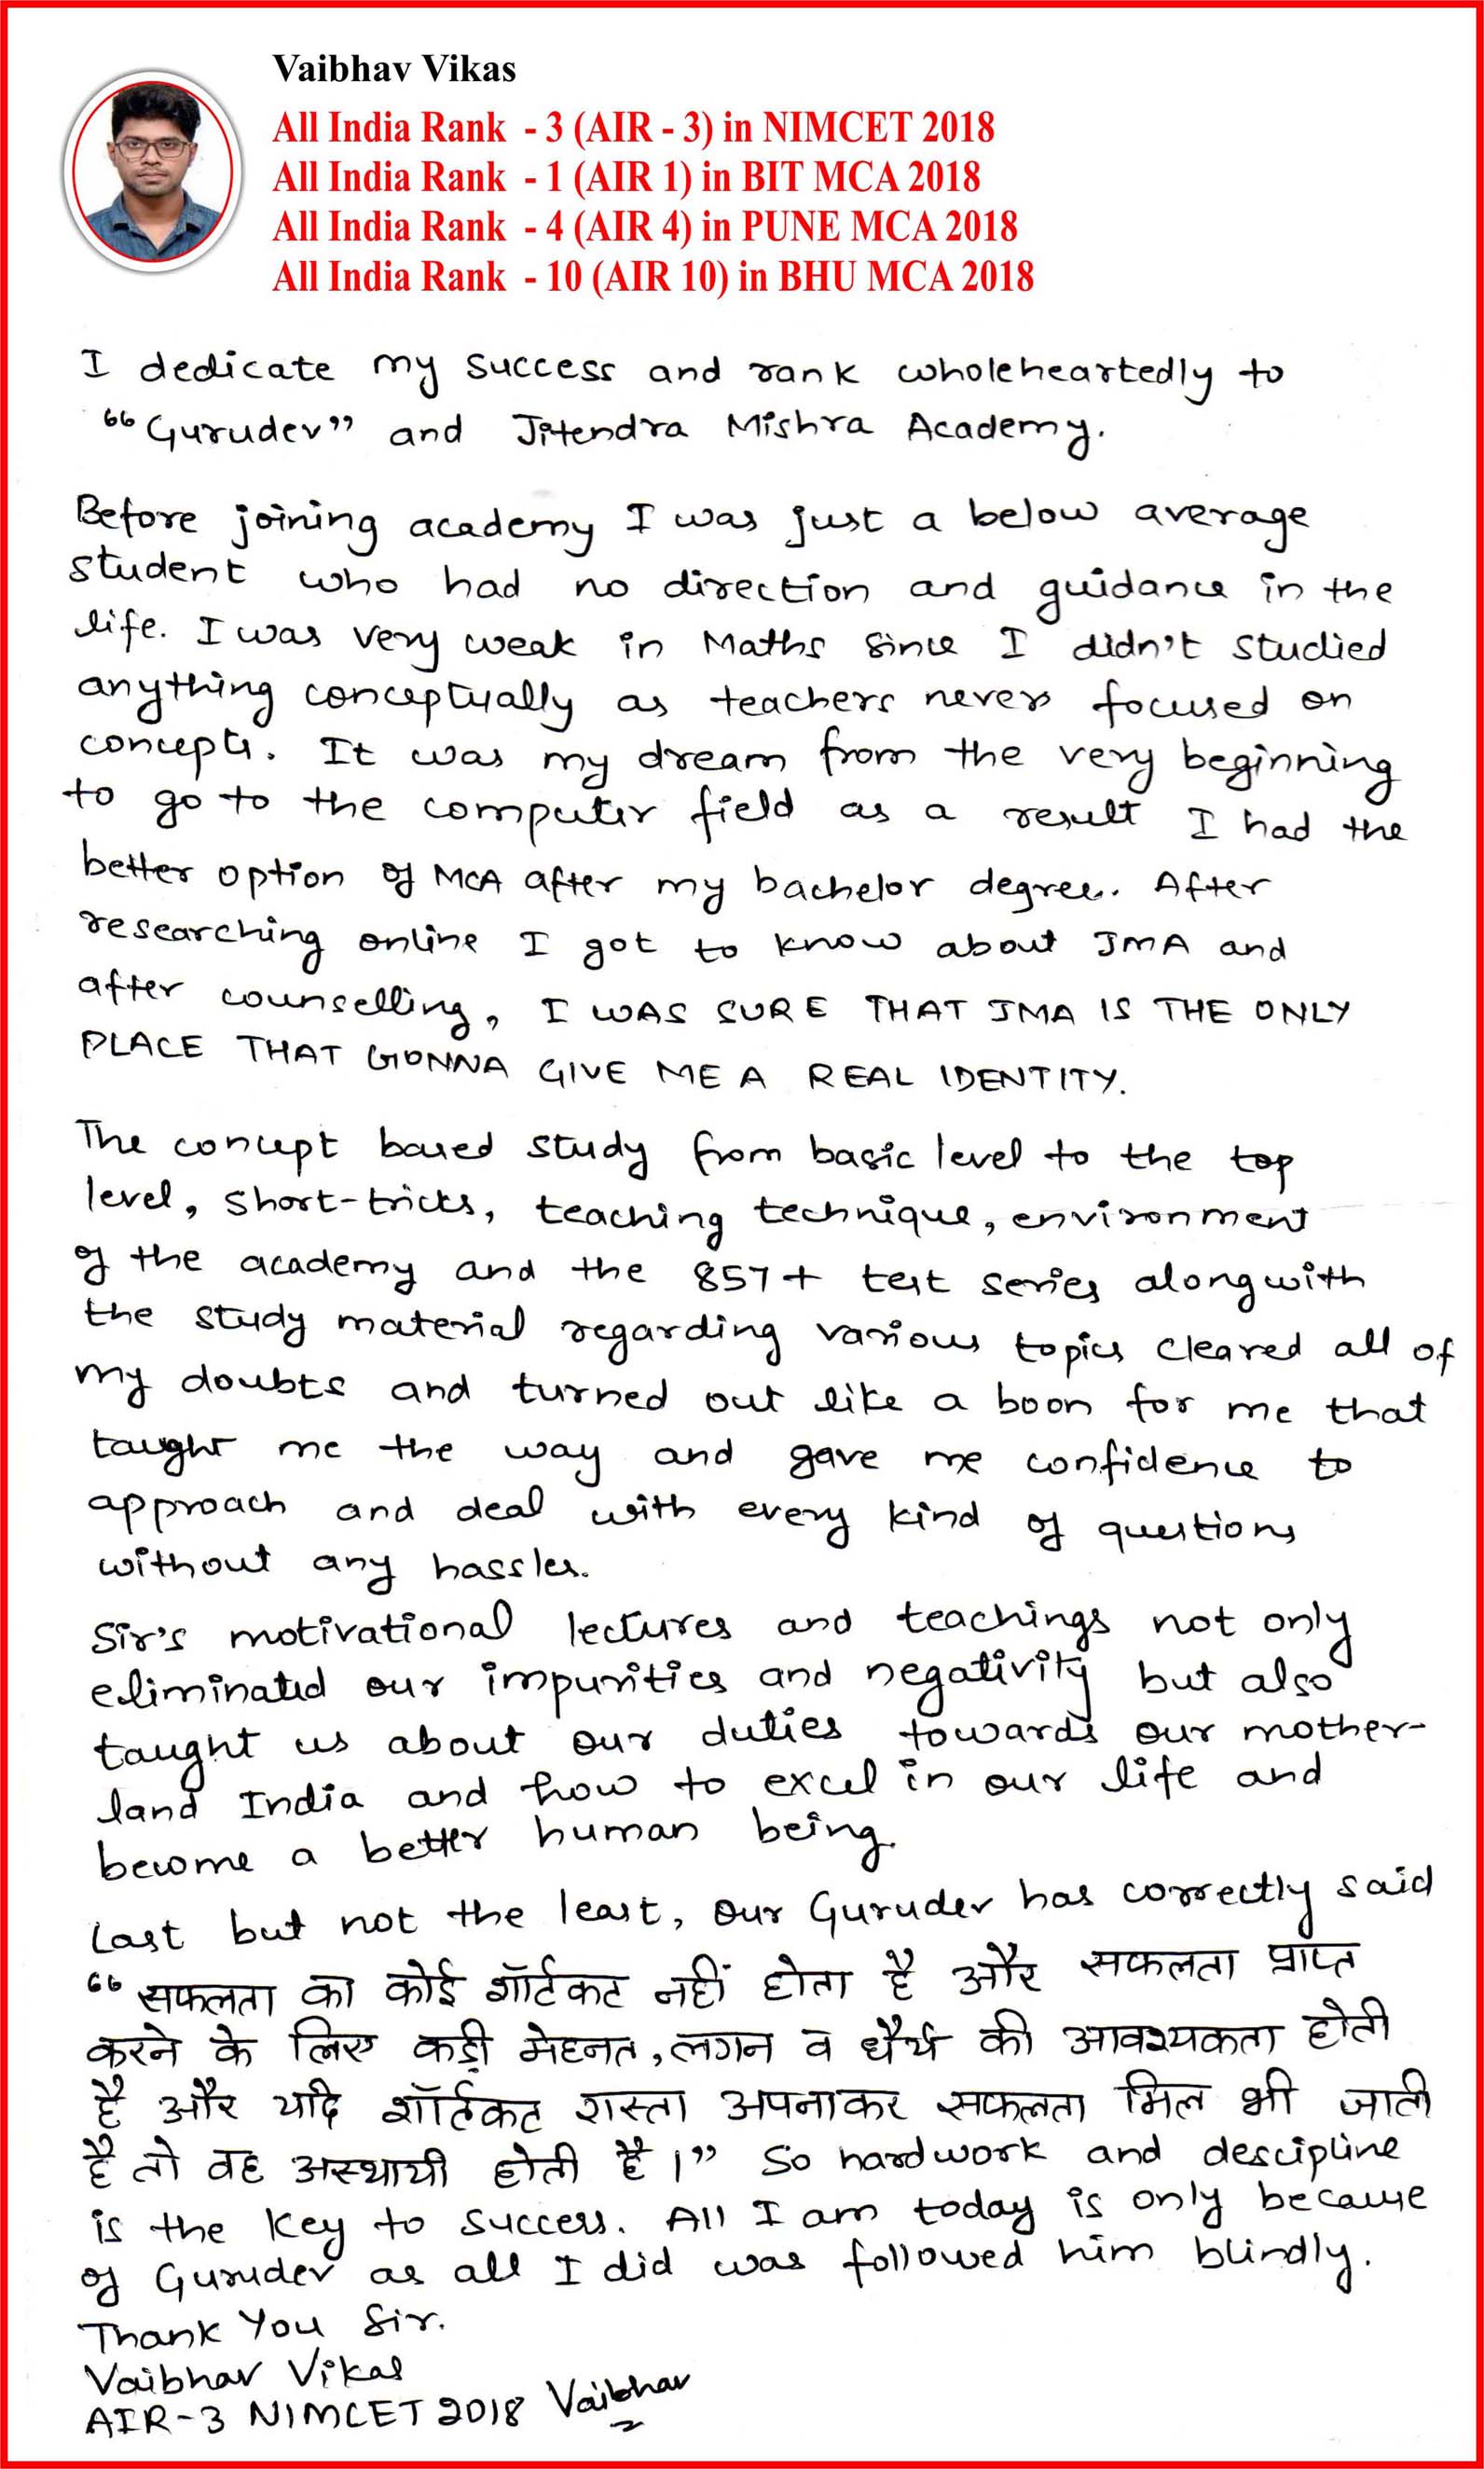 Vaibhav Vikas
All India Rank - 3 (AIR - 3) in NIMCET 2018
All India Rank - 1 (AIR 1) in BIT MCA 2018
All India Rank - 4 (AIR 4) in PUNE MCA 2018
All India Rank - 10 (AIR 10) in BHU MCA 2018
I dedicate my success and rank wholeheartedly to
“Gurudev” and Jitendra Mishra Academy.
Before joining academy I was just a below average
student who had no direction and guidance in the
life. I was very weak in Maths since I didn't studied
anything conceptually as teachers never focused on
concepts. It was my dream from the very beginning
to go to the computer field as a result I had the
better option of MCA after my bachelor degree. After
researching online I got to know about JMA and
after counselling, I WAS SURE THAT JMA IS THE ONLY
PLACE THAT GONNA GIVE ME A REAL IDENTITY.
The concept based study from basic level to the top
level, short-tricks, teaching technique, environment
of the academy and the 857+ test series alongwith
the study material regarding various topics cleared all of
my doubts and turned out like a boon for me that
taught me the way and gave me confidence to
approach and deal with every kind of questions
without any hassles.
Sir's motivational lectures and teachings not only
eliminated our impurities and negativity but also
taught us about our duties towards our mother-
land India and how to excel in our life and
become a better human being.
Last but not the least, our Gurudev has correctly said
“सफलता का कोई शॉर्टकट नहीं होता है और सफलता प्राप्त
करने के लिए कड़ी मेहनत, लगन व धैर्य की आवश्यकता होती
है और यदि शॉर्टकट रास्ता अपनाकर सफलता मिल भी जाती
है तो वह अस्थायी होती है।” So hardwork and descipline
is the key to success. All I am today is only because
of Gurudev as all I did was followed him blindly.
Thank You Sir.
Vaibhav Vikas
AIR-3 NIMCET 2018 Vaibhav